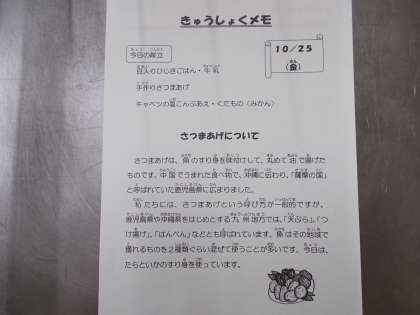 きゅうしょくメモ
今日の献立
10/25
(金)
豆入りひじきごはん・牛乳
手作りさつまあげ
キャベツの塩こんぶあえ・くだもの(みかん)
さつまあげについて
さつまあげは、魚のすり身を味付けして、丸めて油で揚げた
ものです。中国でうまれた食べ物で、沖縄に伝わり、「薩摩の国」
と呼ばれていた鹿児島県に広まりました。
私たちには、さつまあげという呼び方が一般的ですが、
鹿児島県や沖縄県をはじめとする九州地方では、「天ぷら」、「つ
け揚げ」、「はんぺん」などとも呼ばれています。魚はその地域で
獲れるものを2種類ぐらい混ぜて使うことが多いです。今日は、
たらといかのすり身を使っています。